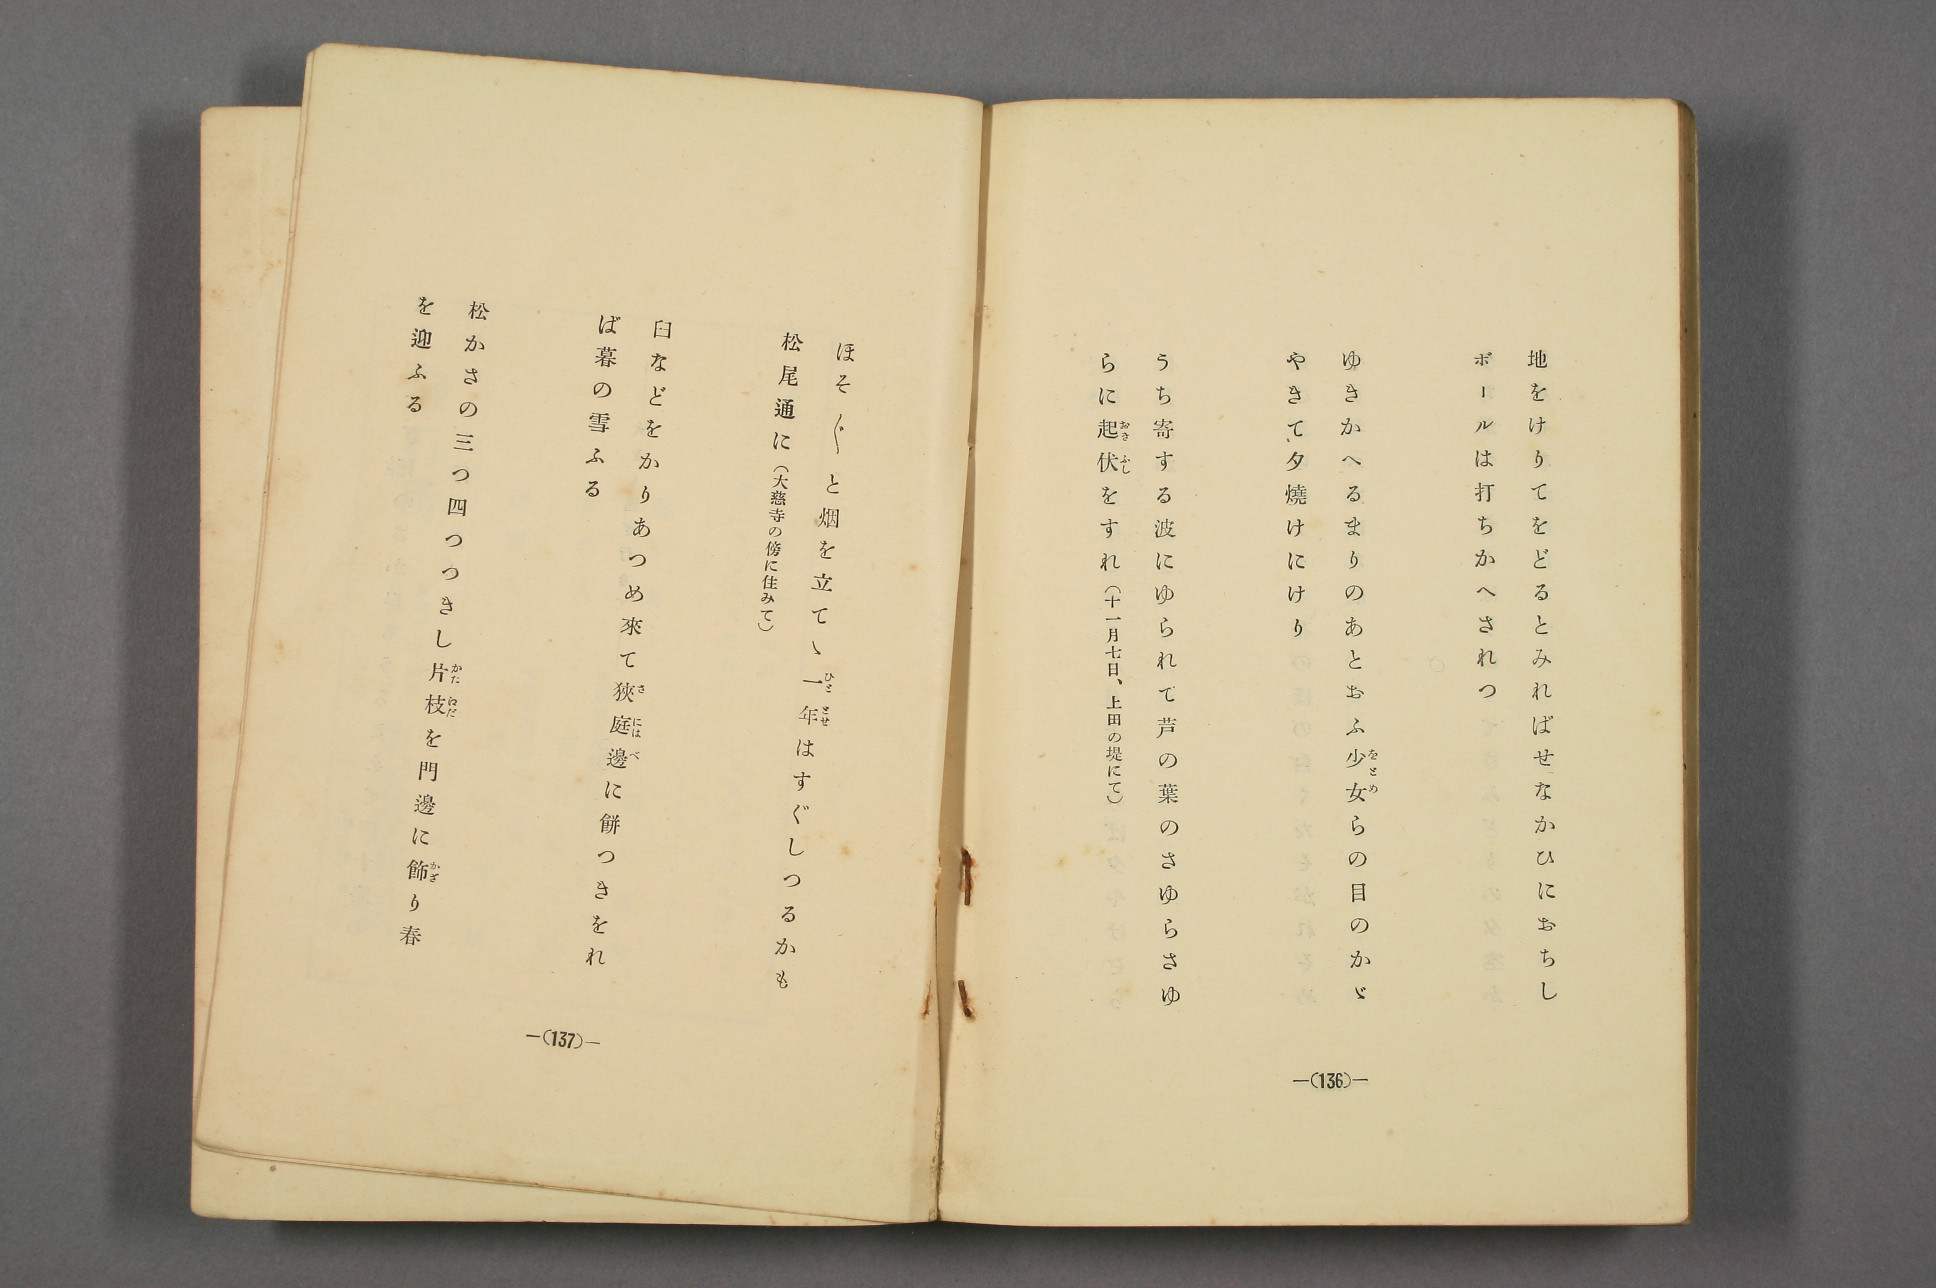 地をけりてをどるとみればせなかひにおちし
ボールは打ちかへされつ
ゆきかへるまりのあとおふ少女らの目のかゞ
やきて夕燒けにけり
うち寄する波にゆられて芦の葉のさゆらさゆ
らに起伏をすれ(十一月七日、上田の堤にて)
—(136)—
ほそ〲と烟を立てゝ一年はすぐしつるかも
松尾通に(大慈寺の傍に住みて)
臼などをかりあつめ來て狹庭邊に餅つきをれ
ば暮の雪ふる
松かさの三つ四つつきし片枝を門邊に飾り春
を迎ふる
—(137)—